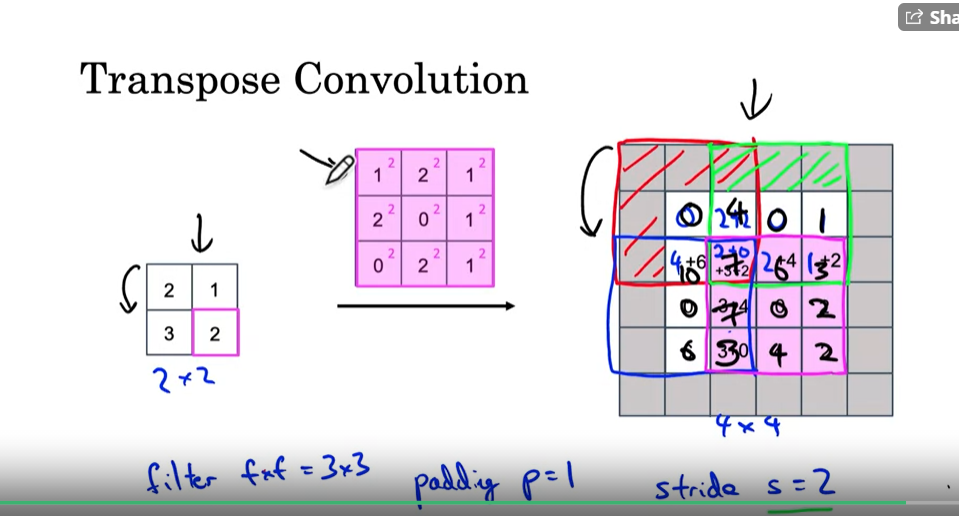 Sha
Transpose Convolution
1² 2² 1²
2² 0² 1²
0² 2² 1²
2 1
3 2
2×2
0 2+2 4 0 1
4+6 10 2+0 +3+2 7 2+4 6 1+2 3
0 3+4 7 0 2
6 3+0 3 4 2
4×4
filter f×f = 3×3 padding p=1 stride s=2